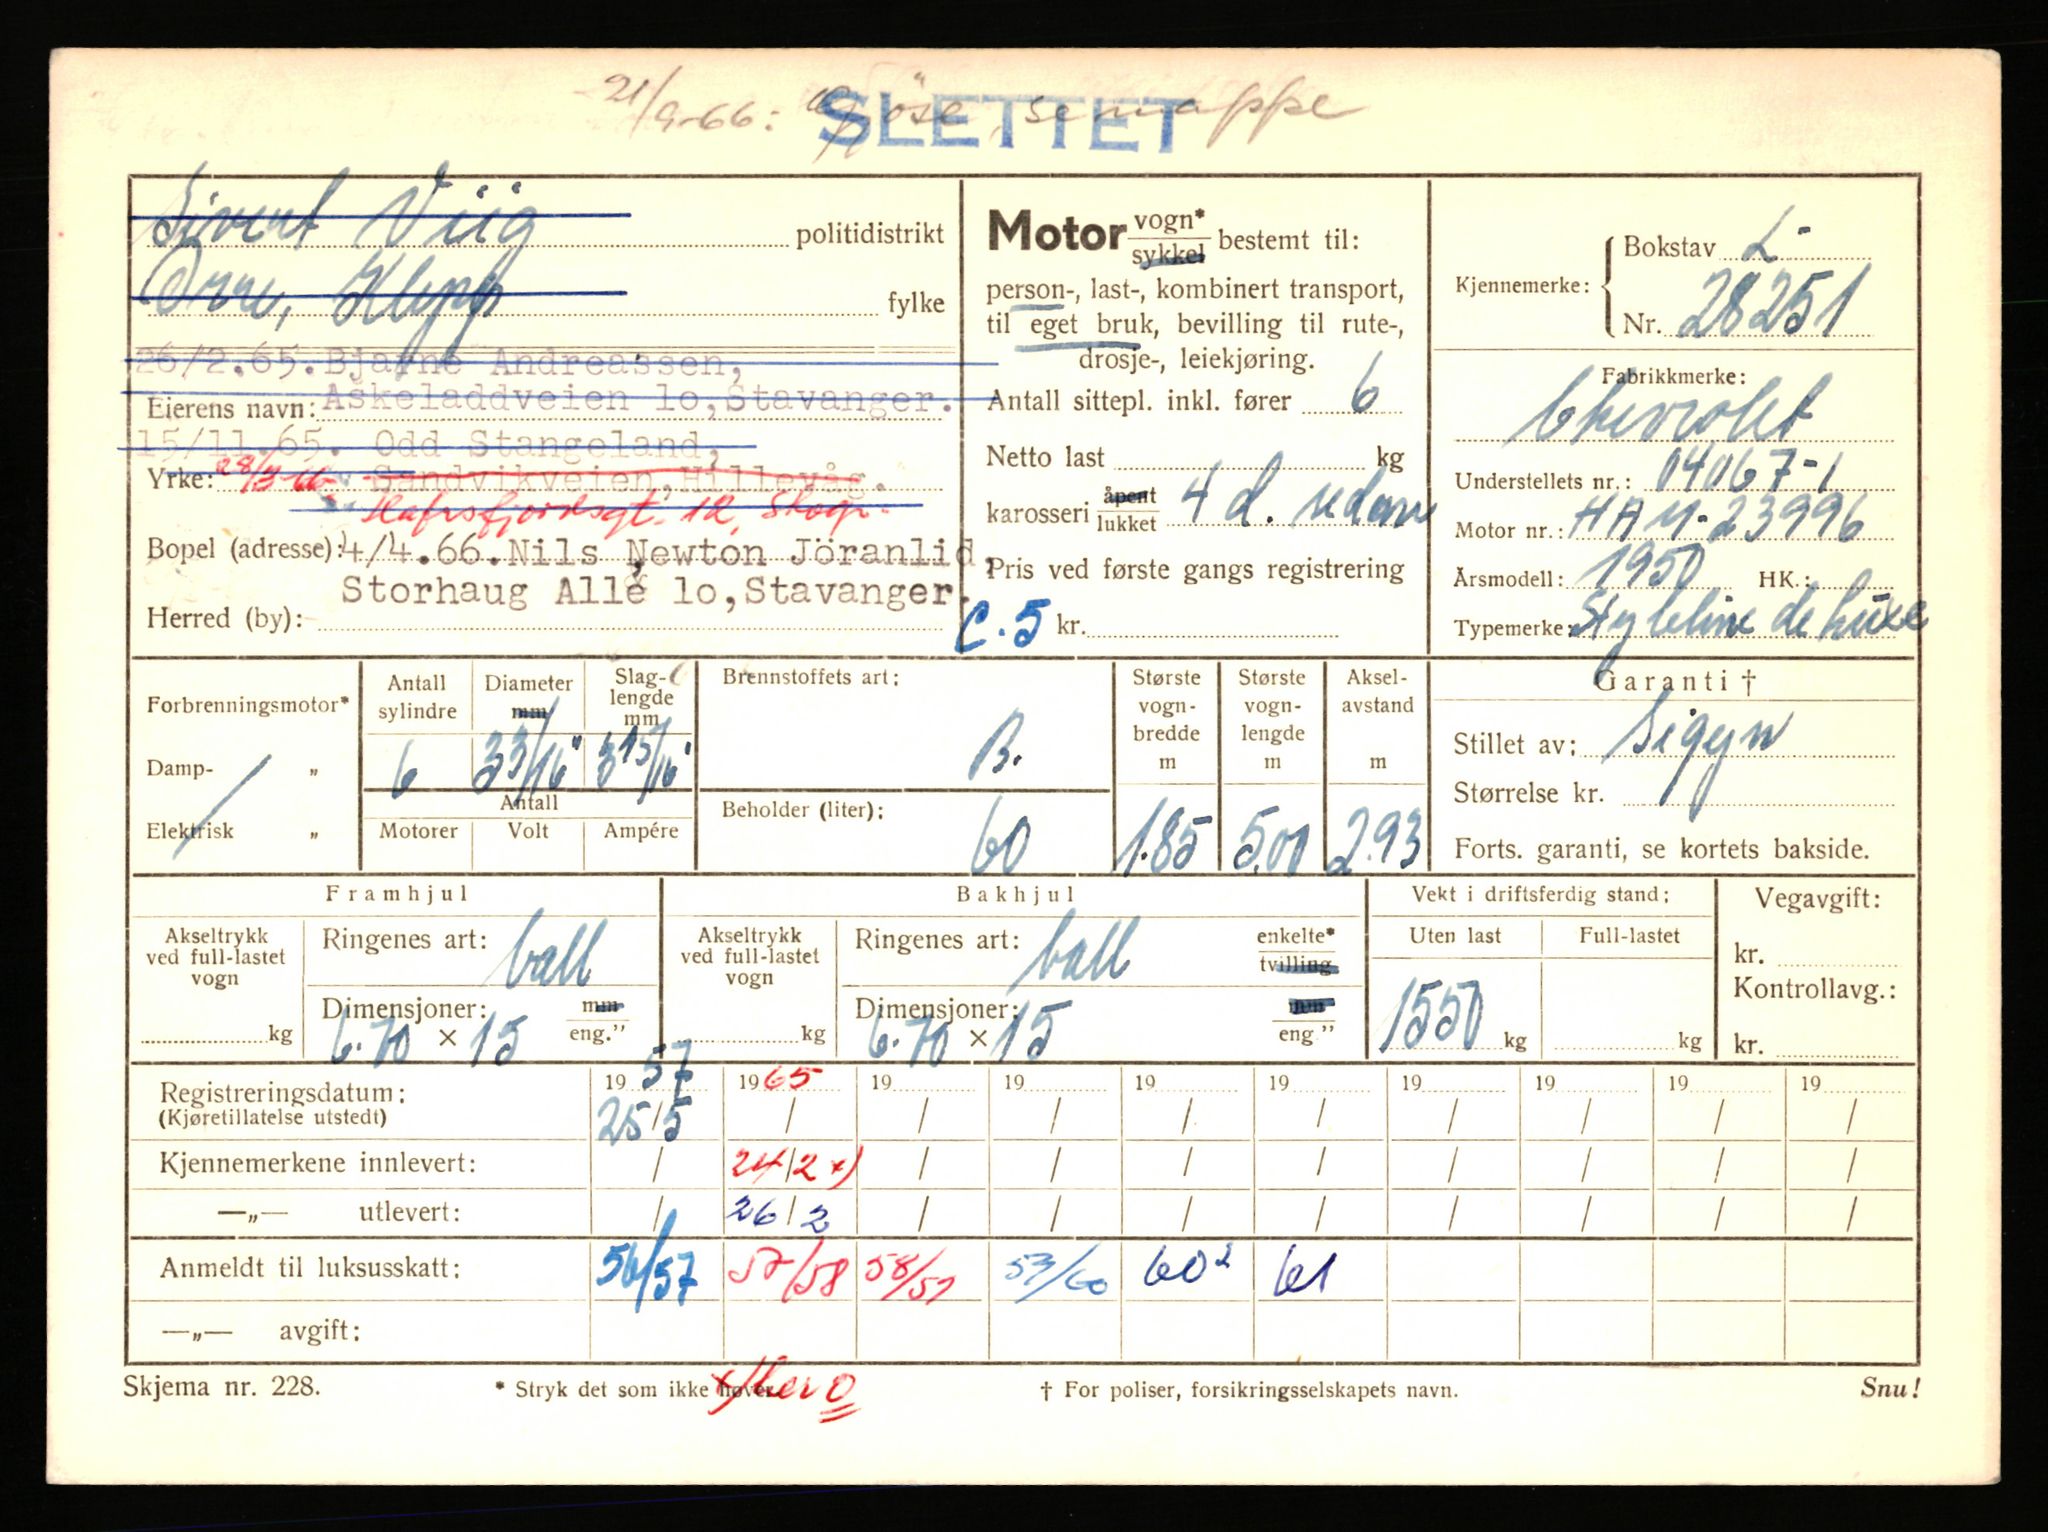 21/9-66: se mappe
SLETTET
Sivert Viig politidistrikt
Orre, Klepp fylke
26/2.65. Bjarne Andreassen,
Eierens navn: Askeladdveien 1o, Stavanger.
15/11.65. Odd Stangeland,
Yrke: 28/3-66 Sandvikveien, Hillevåg.
Hafrsfjordsgt. 12,
Bopel (adresse): 4/4.66. Nils Newton Jöranlid,
Storhaug Allé 1o, Stavanger.
Herred (by):
Motor vogn* sykkel bestemt til:
person-, last-, kombinert transport,
til eget bruk, bevilling til rute-,
drosje-, leiekjøring.
Antall sittepl. inkl. fører 6
Netto last kg
karosseri åpent lukket 4 d. sedan
Pris ved første gangs registrering
C. 5 kr.
Kjennemerke: Bokstav L-
Nr. 28251
Fabrikkmerke:
Chevrolet
Understellets nr.: 04067-1
Motor nr.: HAM-23996
Årsmodell: 1950 HK.:
Typemerke: Styleline de luxe
Forbrenningsmotor*
Damp- „
Elektrisk „
Antall sylindre 6
Diameter mm 3 3/16"
Slaglengde mm 3 15/16"
Antall
Motorer Volt Ampére
Brennstoffets art: B.
Beholder (liter): 60
Største vognbredde m 1.85
Største vognlengde m 5.00
Akselavstand m 2.93
Garanti †
Stillet av: Sigyn
Størrelse kr.
Forts. garanti, se kortets bakside.
Framhjul
Akseltrykk ved full-lastet vogn kg
Ringenes art: ball
Dimensjoner: mm
6.70 × 15 eng.”
Bakhjul
Akseltrykk ved full-lastet vogn kg
Ringenes art: ball enkelte* tvilling
Dimensjoner: mm
6.70 × 15 eng.”
Vekt i driftsferdig stand:
Uten last Full-lastet
1550 kg kg
Vegavgift:
kr.
Kontrollavg.:
kr.
Registreringsdatum: 19 57 19 65 19 19 19 19 19 19 19 19
(Kjøretillatelse utstedt) 25/5 / / / / / / / / /
Kjennemerkene innlevert: / 24/2 x) / / / / / / / /
—„— utlevert: / 26/2 / / / / / / / /
Anmeldt til luksusskatt: 56/57 57/58 58/59 59/60 60² 61
—„— avgift:
Skjema nr. 228. * Stryk det som ikke høver. † For poliser, forsikringsselskapets navn. Snu!